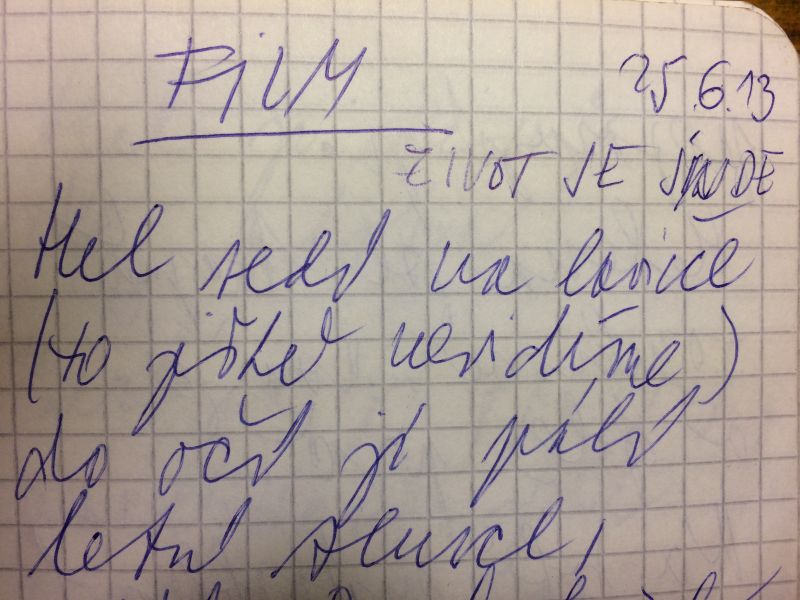 FILM
25.6.13
ŽIVOT JE JINDE
Hel sedí na lavičce
(to ještě nevidíme)
do očí jí pálí
letní slunce,